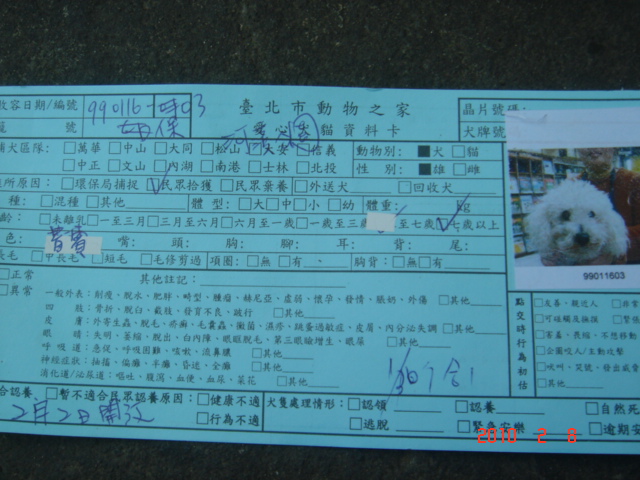 收容日期/編號 990116- 03 臺北市動物之家 晶片號碼:
號 貓資料卡 犬牌號
捕犬區隊: □萬華□中山□大同□松山□大安□信義 動物別: ■犬□貓
□中正□文山□內湖□南港□士林□北投 性別: ■雄□雌
所原因: □環保局捕捉□民眾拾獲□民眾棄養□外送犬 □回收犬
種: □混種□其他 體型: □大□中□小□幼 體重: kg
齡: □未離乳□一至三月□三月至六月□六月至一歲□一歲至三歲 至七歲□七歲以上
色: 嘴: 頭: 胸: 腳: 耳: 背: 尾:
長毛□中長毛□短毛□毛修剪過 項圈:□無□有 、 胸背:□無□有
99011603
□正常 其他註記:
□異常 一般外表:削瘦、脫水、肥胖、畸型、腫瘤、赫尼亞、虛弱、懷孕、發情、脹奶、外傷 □其他
四肢:骨折、脫臼、截肢、發育不良、跛行 □其他
皮膚:外寄生蟲、脫毛、疥癬、毛囊蟲、黴菌、濕疹、跳蚤過敏症、皮屑、內分泌失調□其他
眼睛:失明、萎縮、脫出、白內障、眼瞼脫毛、第三眼瞼增生、眼屎 □其他
呼吸道:急促、呼吸困難、咳嗽、流鼻膿 □其他
神經症狀:抽搐、偏癱、半癱、昏迷、全癱 □其他
消化道/泌尿道:嘔吐、腹瀉、血便、血尿、菜花 □其他
點交時行為初估
□友善、親近人 □非常
□可碰觸及撫摸 □緊張
□害羞、畏縮、不想移動
□企圖咬人/主動攻擊
□吠叫、哭號、發出威脅
□其他
合認養、□暫不適合民眾認養原因:□健康不適 犬隻處理情形:□認領 □認養 □自然死
2月2日開放 □行為不適 □逃脫 □緊急安樂 □逾期安
2010 2 8